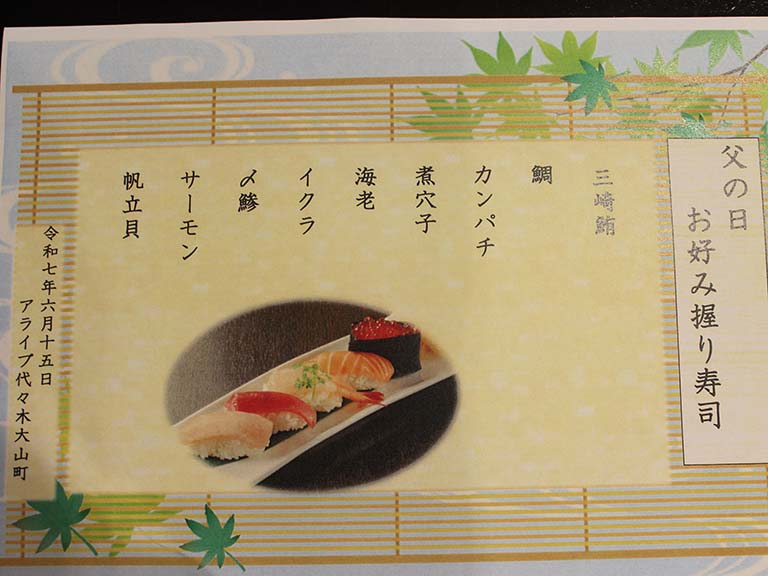 父の日
お好み握り寿司
三崎鮪
鯛
カンパチ
煮穴子
海老
イクラ
〆鯵
サーモン
帆立貝
令和七年六月十五日
アライブ代々木大山町